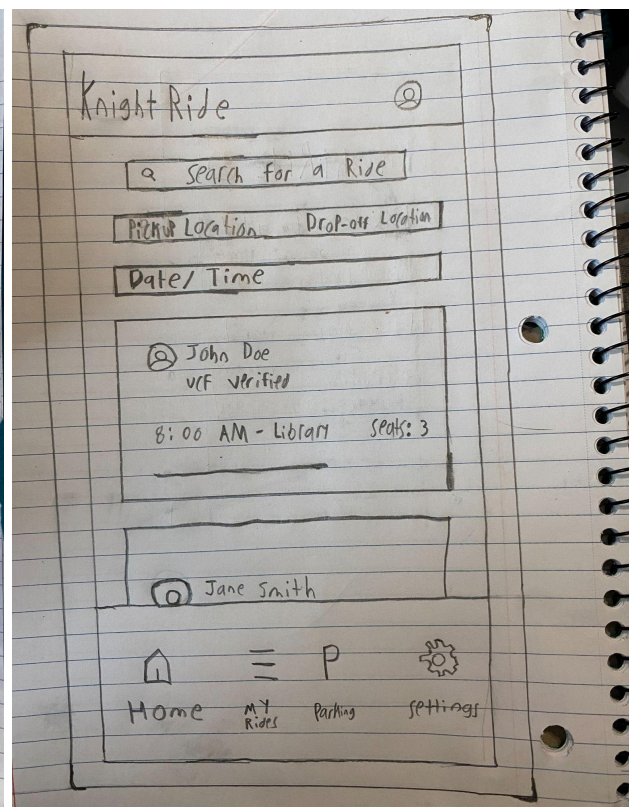 Knight Ride
Search for a Ride
Pickup Location Drop-off Location
Date/ Time
John Doe
UCF verified
8:00 AM - Library Seats: 3
Jane Smith
Home MY Rides Parking Settings
P